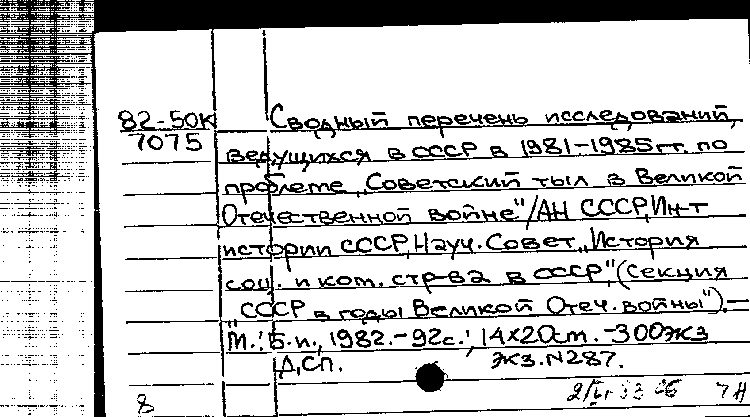 82-50К Сводный перечень исследований,
7075 ведущихся в СССР в 1981-1985гг. по
проблеме „Советский тыл в Великой
Отечественной войне"/АН СССР, Ин-т
истории СССР, Науч. Совет „История
соц. и ком. стр-ва в СССР," (секция
„СССР в годы Великой Отеч. войны").-
М.: Б.и., 1982.-92с.; 14х20см.-300экз
Д.сп. Экз.N287.
8